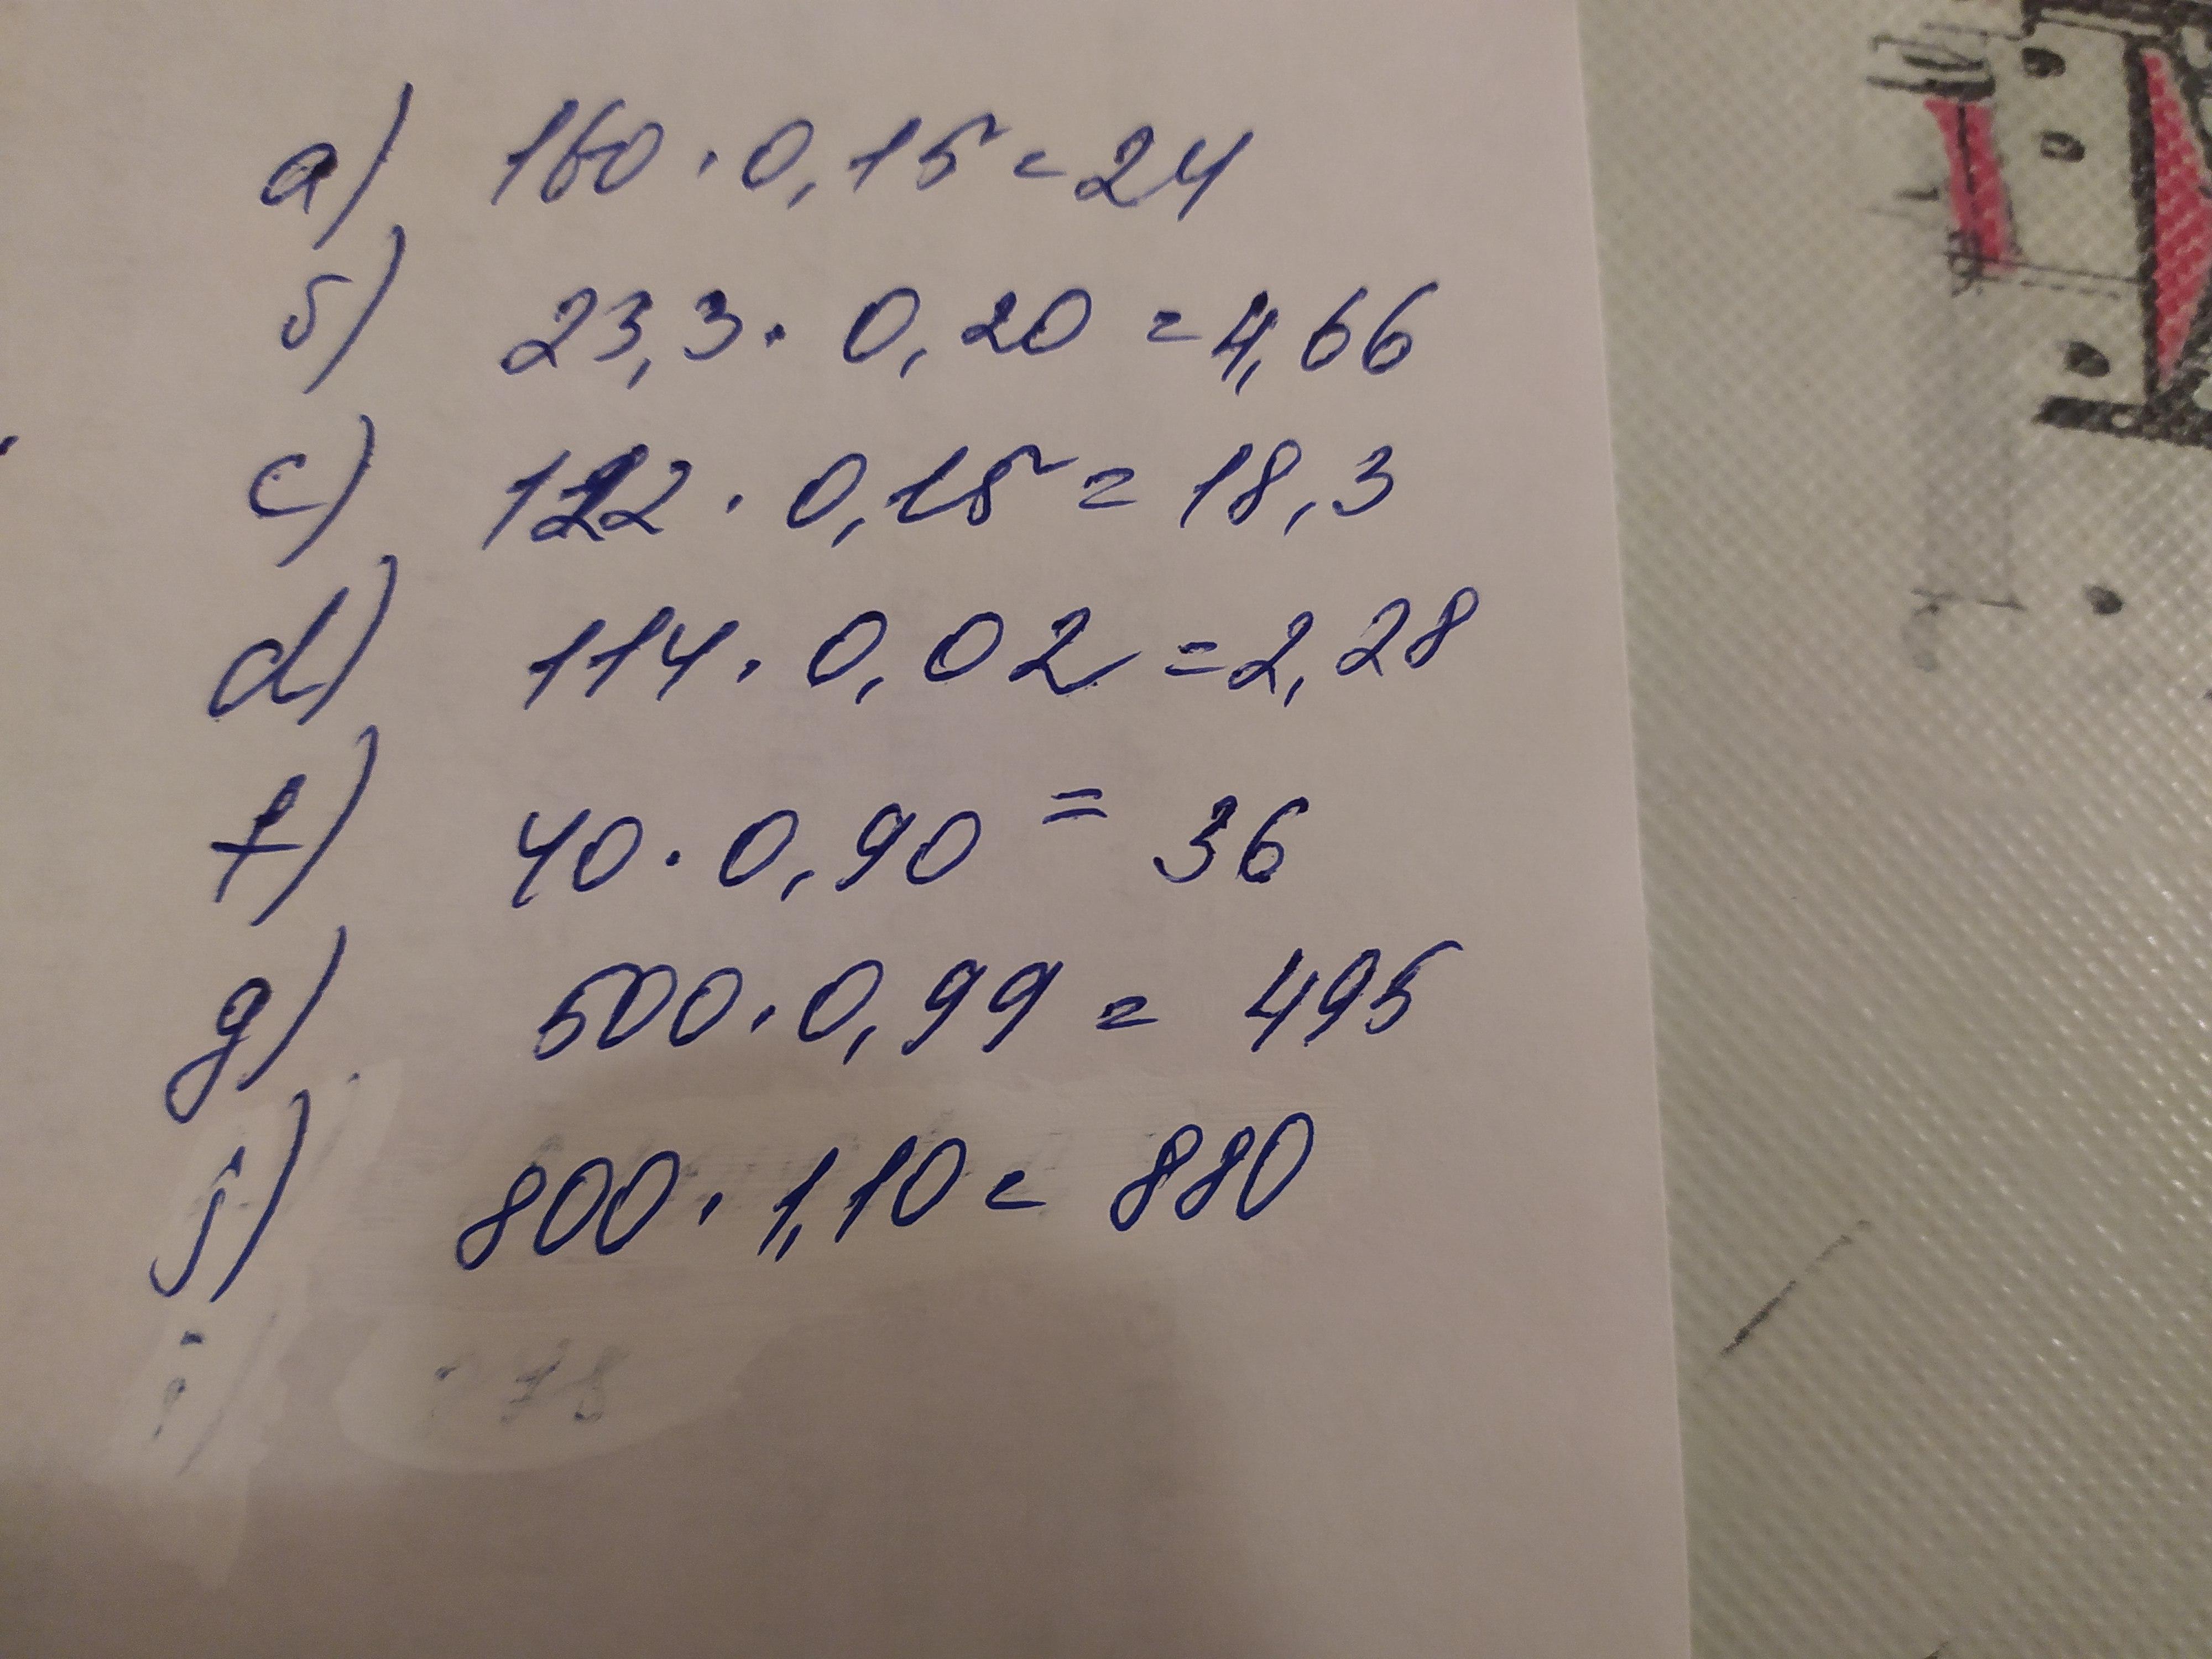 a) 160 · 0,15 = 24
б) 23,3 · 0,20 = 4,66
c) 122 · 0,15 = 18,3
d) 114 · 0,02 = 2,28
f) 40 · 0,90 = 36
g) 500 · 0,99 = 495
j) 800 · 1,10 = 880